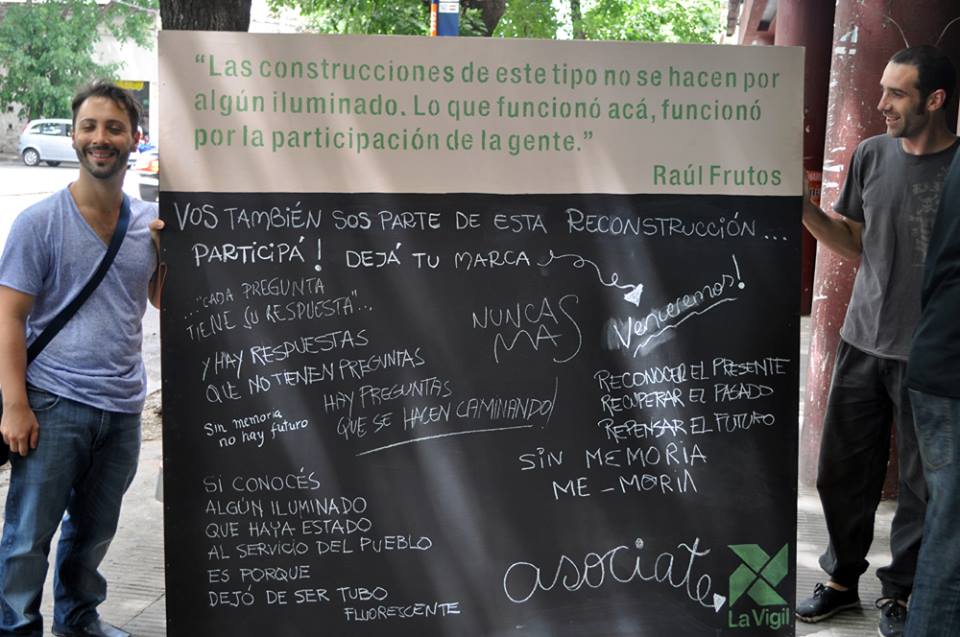 “Las construcciones de este tipo no se hacen por
algún iluminado. Lo que funcionó acá, funcionó
por la participación de la gente.”
Raúl Frutos
VOS TAMBIÉN SOS PARTE DE ESTA RECONSTRUCCIÓN...
PARTICIPÁ! DEJÁ TU MARCA
..."CADA PREGUNTA
TIENE SU RESPUESTA"...
Y HAY RESPUESTAS
QUE NO TIENEN PREGUNTAS
Sin memoria
no hay futuro
HAY PREGUNTAS
QUE SE HACEN CAMINANDO!
NUNCAS
MAS
Venceremos!
RECONOCER EL PRESENTE
RECUPERAR EL PASADO
REPENSAR EL FUTURO
SIN MEMORIA
ME-MORIA
SI CONOCÉS
ALGÚN ILUMINADO
QUE HAYA ESTADO
AL SERVICIO DEL PUEBLO
ES PORQUE
DEJÓ DE SER TUBO
FLUORESCENTE
asociate
La Vigil